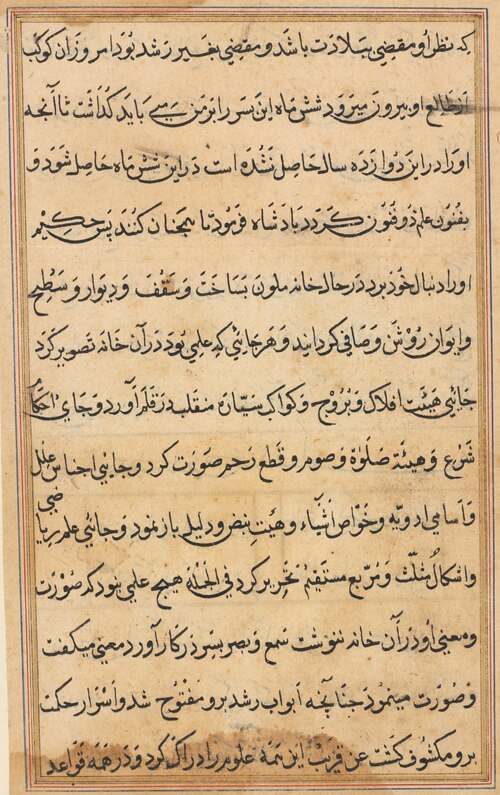 که نظر او مقتضی بتلادت باشد و مقتضی بغیر رشد بود امروز آن کوکب
از طالع او بیرون میرود شش ماه این پسر را بر من می باید گذاشت تا آنچه
او را در این دوازده سال حاصل نشده است در این شش ماه حاصل شود و
بفنون علم ذو فنون گردد بادشاه فرمود تا همچنان کنند پس حکیم
او را دنبال خود برد در حال خانه ملون بساخت و سقف و دیوار و سطیح
و ایوان روشن و صافی کردانید و هر جائی که علمی بود در آن خانه تصویر کرد
جائی هیئت افلاک و بروج و کواکب سیاره منقلب در قلم آورد و جای احکام
شرع و هیئة صلوة و صوم و قطع رحم صورت کرد و جائی اجناس علل
و اسامی ادویه و خواص اشیاء و هیئت نبض و دلیله باز نمود و جائی علم ریاضی
و اشکال مثلث و مربع مستقیم تحریر کرد فی الجمله هیچ علمی نبود که صورت
و معنی او در آن خانه ننوشت سمع و بصر پسر در کار آورد معنی میگفت
و صورت مینمود جنانچه ابواب رشد برو مفتوح شد و اسرار حکمت
برو مکشوف گشت عن قریب این همه علوم را ادراک کرد و در همه قواعد